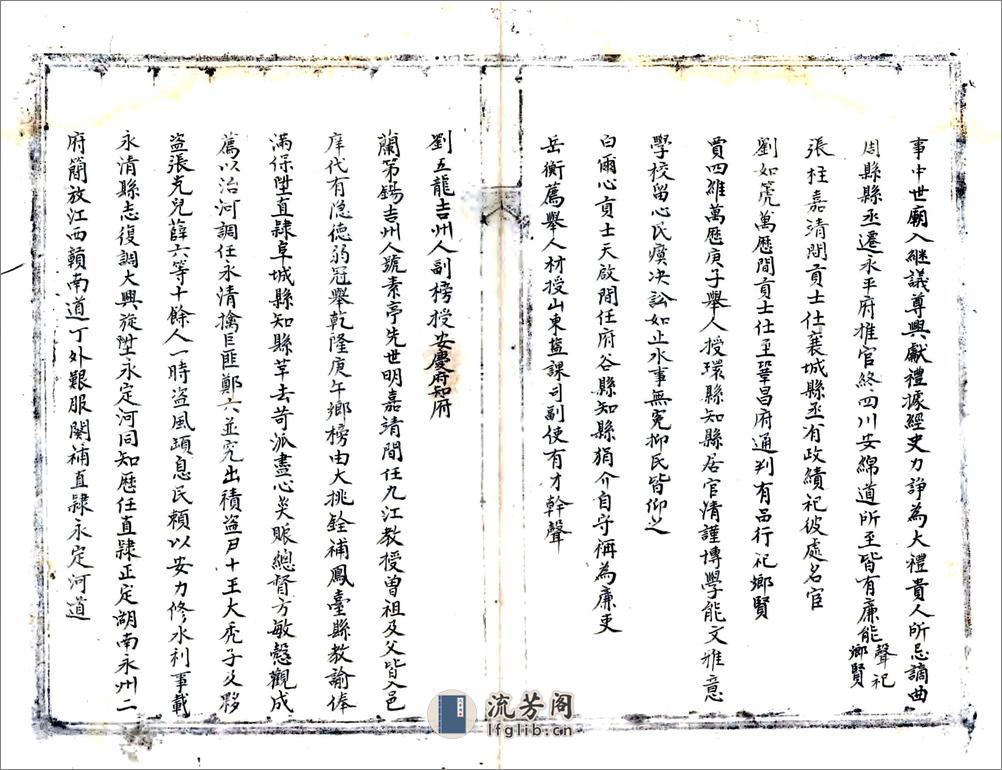 事中世廟入繼議尊興獻禮據經史力諍為大禮貴人所忌謫曲
周縣縣丞遷永平府推官終四川安綿道所至皆有廉能聲祀鄉賢
張柱嘉清間貢士仕襄城縣丞有政績祀彼處名宦
劉如箎萬歷間貢士仕至鞏昌府通判有品行祀鄉賢
賈四維萬歷庚子舉人授環縣知縣居官清謹博學能文雅意
學校留心民瘼决訟如止水事無冤抑民皆仰之
白爾心貢士天啟間任府谷縣知縣狷介自守稱為廉吏
岳衡薦舉人材授山東鹽課司副使有才幹聲
劉五龍吉州人副榜授安慶府知府
蘭第錫吉州人號素亭先世明嘉清間任九江教授曾祖及父皆入邑
庠代有隐德弱冠舉乾隆庚午鄉榜由大挑銓補鳳臺縣教諭俸
滿保陞直隸阜城縣知縣革去苛派盡心災賑總督方敏慤觀成
薦以治河調任永清擒巨匪鄭六並究出積盜尹十王大禿子及夥
盜張克兒薛六等十餘人一時盜風頓息民賴以安力修水利事載
永清縣志復調大興旋陞永定河同知歷任直隸正定湖南永州二
府簡放江西贛南道丁外艱服闋補直隸永定河道
流芳阁
lfglib.cn